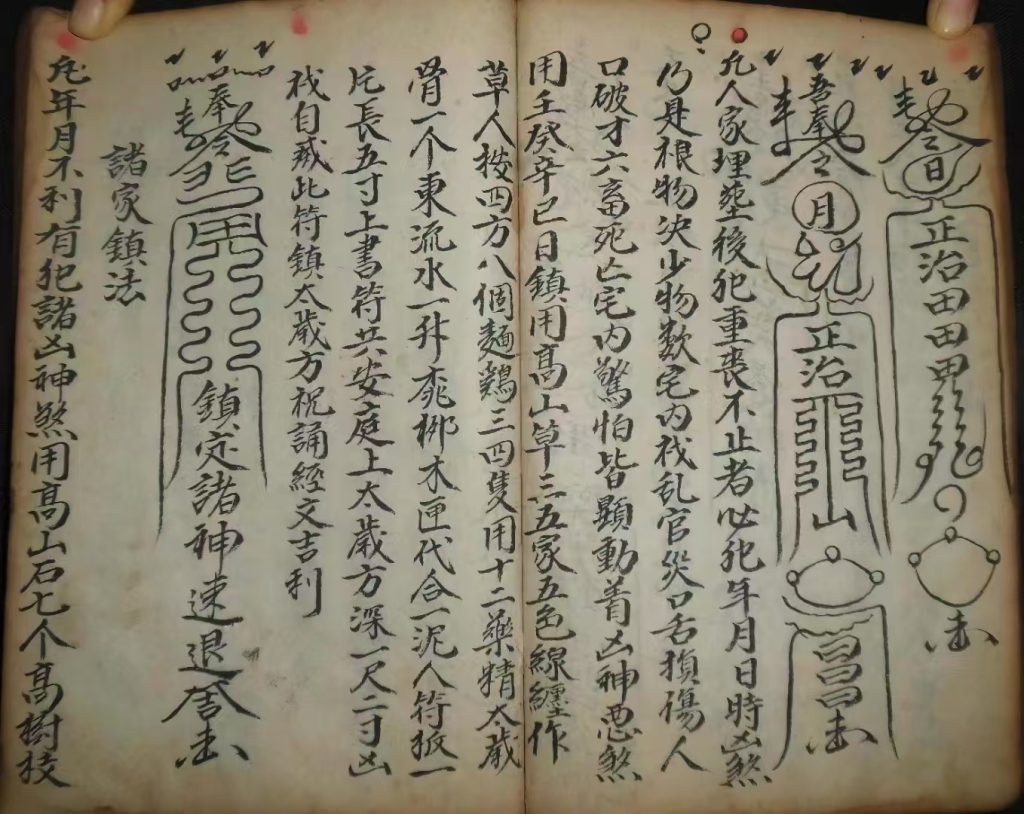 奉令日正治田田
吾奉令月正治山昌
凡人家埋塟後犯重喪不止者必犯年月日時凶煞
乃是禄物决少物数宅内我乱官災口舌損傷人
口破才六畜死亡宅内驚怕皆顯動着凶神惡煞
用壬癸辛巳日鎮用高山草三五家五色線纏作
草人按四方八個麵鷄三四隻用十二藥精太歲
骨一个東流水一升桃柳木匣代合一泥人符扳一
片長五寸上書符共安庭上太歲方深一尺二寸凶
我自滅此符鎮太歲方祝誦經文吉利
奉令鎮定諸神速退
諸家鎮法
凡年月不利有犯諸凶神煞用高山石七个高樹枝